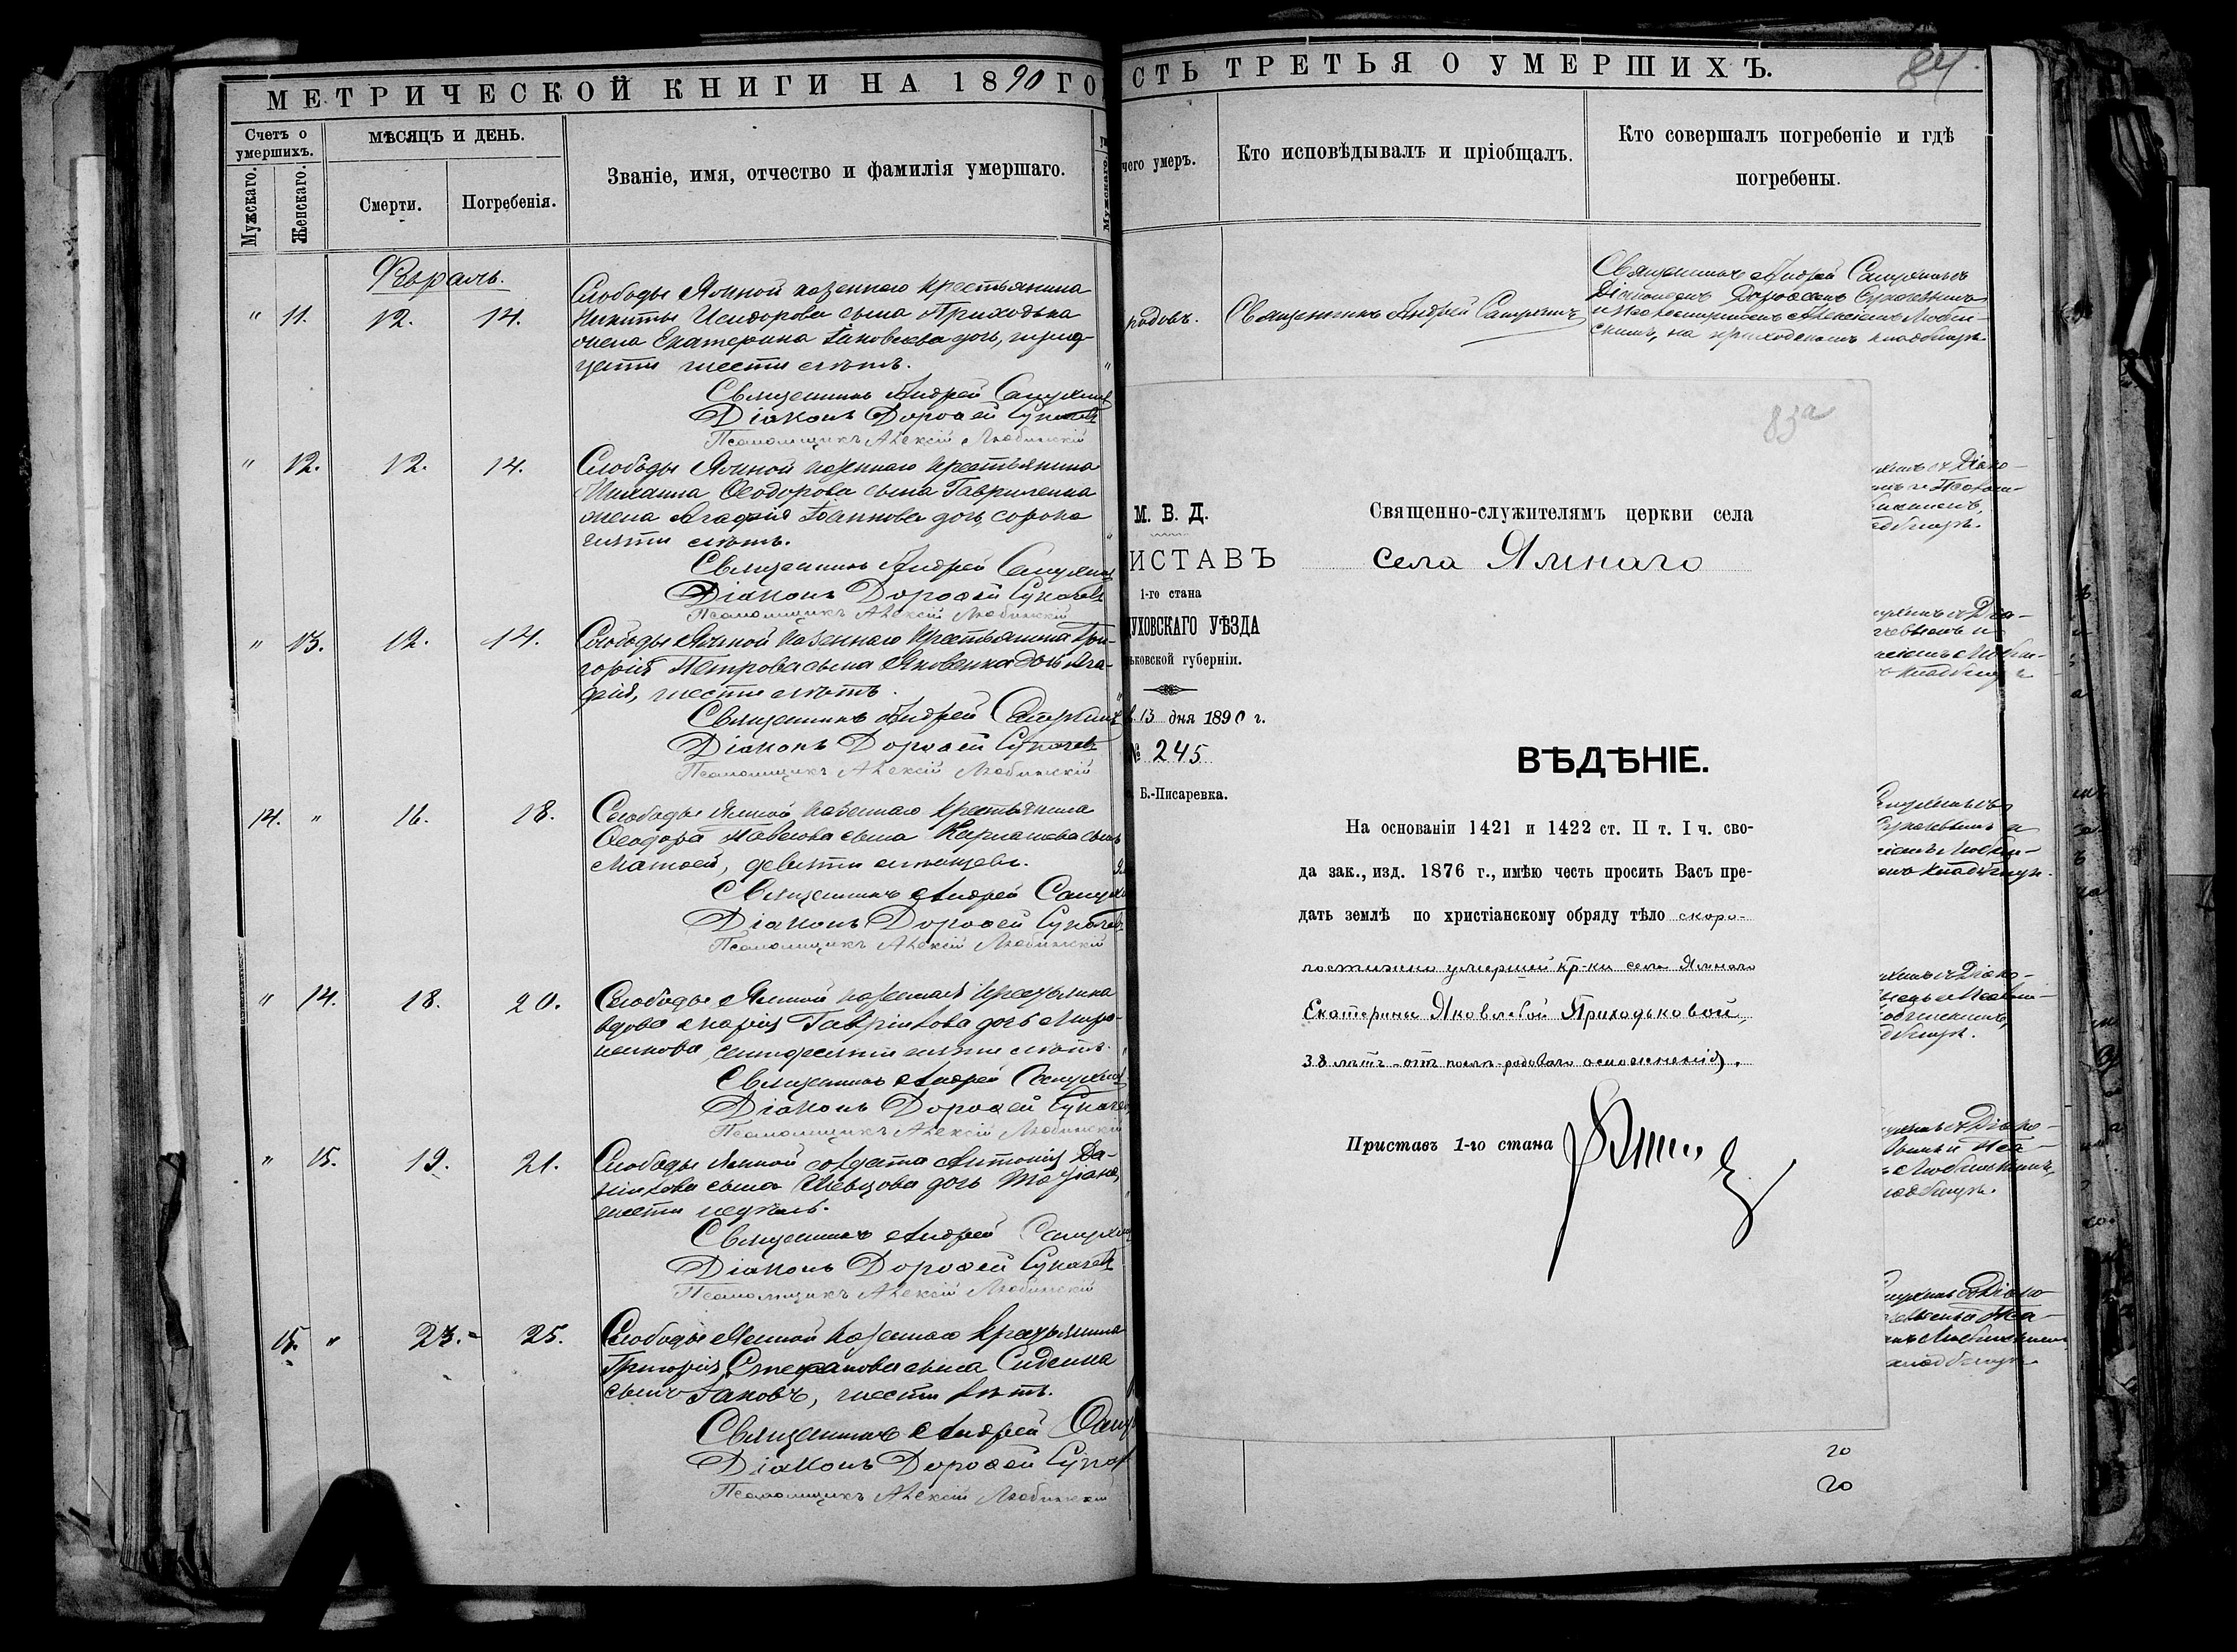 МЕТРИЧЕСКОЙ КНИГИ НА 1890 ГО
Счетъ о умершихъ.
Мужскаго.
Женскаго.
МѢСЯЦЪ И ДЕНЬ.
Смерти.
Погребенія.
Званіе, имя, отчество и фамилія умершаго.
Мужскаго.
Февраль.
" 11. 12. 14.
Слободы Ямной казеннаго крестьянина
Никиты Исидорова сына Приходька
жена Екатерина Іаковлева дочь, трид-
цати шести лѣтъ.
Священникъ Андрей
Діаконъ Дороѳей Сукачев
Псаломщикъ Алексій Любинскій
" 12. 12. 14.
Слободы Ямной казеннаго крестьянина
Михаила Ѳеодорова сына Гавриленка
жена Агафія Іоаннова дочь, сорока
пяти лѣтъ.
Священникъ Андрей
Діаконъ Дороѳей Сукачев
Псаломщикъ Алексій Любинскій
" 13. 12. 14.
Слободы Ямной казеннаго крестьянина Гри-
горія Петрова сына Яковенка дочь Ага-
фія, шести лѣтъ.
Священникъ Андрей
Діаконъ Дороѳей Сукачев
Псаломщикъ Алексій Любинскій
14. " 16. 18.
Слободы Ямной казеннаго крестьянина
Ѳеодора Павлова сына сынъ
Матѳей, девяти мѣсяцевъ.
Священникъ Андрей
Діаконъ Дороѳей Сукачев
Псаломщикъ Алексій Любинскій
" 14. 18. 20.
Слободы Ямной казеннаго крестьянина
вдова Марія Гавріилова дочь Миро-
ненкова, семидесяти пяти лѣтъ.
Священникъ Андрей
Діаконъ Дороѳей Сукачев
Псаломщикъ Алексій Любинскій
" 15. 19. 21.
Слободы Ямной солдата Антонія Да-
ніилова сына Шевцова дочь Татіана,
шести недѣль.
Священникъ Андрей
Діаконъ Дороѳей Сукачев
Псаломщикъ Алексій Любинскій
15. " 23. 25.
Слободы Ямной казеннаго крестьянина
Григорія Стефанова сына Сиденка
сынъ Іаковъ, шести лѣтъ.
Священникъ Андрей
Діаконъ Дороѳей Сукач
Псаломщикъ Алексій Любинскій
СТЬ ТРЕТЬЯ О УМЕРШИХЪ.
84.
чего умеръ.
Кто исповѣдывалъ и пріобщалъ.
Кто совершалъ погребеніе и гдѣ
погребены.
родовъ.
Священникъ Андрей
Священникъ Андрей
Діакономъ Дороѳеемъ Сукачевымъ
и псаломщикомъ Алексіемъ Любин-
скимъ, на приходскомъ кладбищѣ.
83а
М. В. Д.
ИСТАВЪ
1-го стана
УХОВСКАГО УѢЗДА
ьковской губерніи.
13 дня 1890 г.
№ 245
Б.-Писаревка.
Священно-служителямъ церкви села
села Ямнаго
ВѢДѢНІЕ.
На основаніи 1421 и 1422 ст. II т. I ч. сво-
да зак., изд. 1876 г., имѣю честь просить Васъ пре-
дать землѣ по христіанскому обряду тѣло скоро-
постижно умершей кр-ки села Ямнаго
Екатерины Яковлевой Приходьковой,
38 лѣтъ - отъ послѣ-родоваго осложненія.
Приставъ 1-го стана
20
20